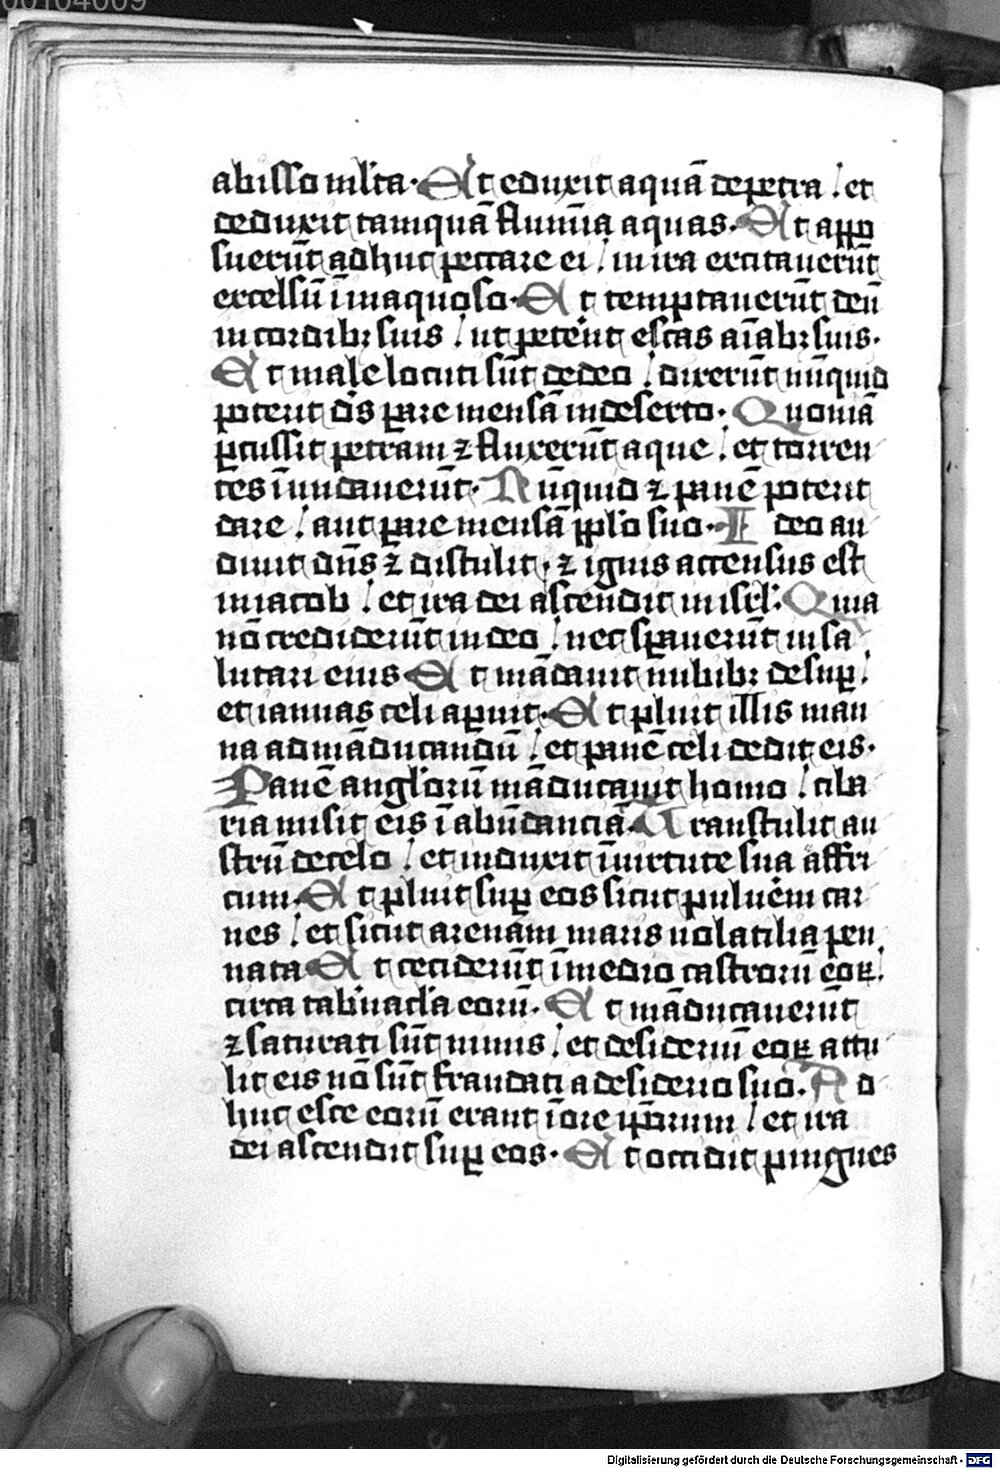 00104009
abisso ml'ta. Et eduxit aquā de petra ! et
deduxit tamquā flumīa aquas. Et appo
suerūt adhuc peccare ei ! in ira excitauerūt
excelsū ī inaquoso. Et temptauerūt deū
in cordibꝫ suis ! ut peterēt escas aīabꝫ suis.
Et male locuti sūt de deo ! dixerūt nūquid
poterit ds̄ ꝑare mensā in deserto. Quoniā
ꝑcussit petram ⁊ fluxerūt aque ! et torren
tes īundauerūt. Nūquid ⁊ panē poterit
dare ! aut ꝑare mensā pplo suo. Ideo au
diuit dn̄s ⁊ distulit. ⁊ ignis accensus est
in iacob ! et ira dei ascendit in isrl'. Quia
nō crediderūt in deo ! nec sꝑauerūt in sa
lutari eius Et mādauit nubibꝫ desuꝑ !
et ianuas celi aꝑuit. Et pluit illis man
na ad māducandū ! et panē celi dedit eis.
Panē angl'orū māducauit homo ! ciba
ria misit eis ī abūdanciā. Transtulit au
strū de celo ! et induxit ī uirtute sua affri
cum. Et pluit suꝑ eos sicut puluēm car
nes ! et sicut arenam maris uolatilia pen
nata Et ceciderūt ī medio castrorū eoꝝ !
circa tab'nacl'a eorū. Et māducauerūt
⁊ saturati sūt nimis ! et desideriū eoꝝ attu
lit eis nō sūt fraudati a desiderio suo. Ad
huc esce eorū erant ī ore ip̄orum ! et ira
dei ascendit suꝑ eos. Et occidit pingues
Digitalisierung gefördert durch die Deutsche Forschungsgemeinschaft - DFG